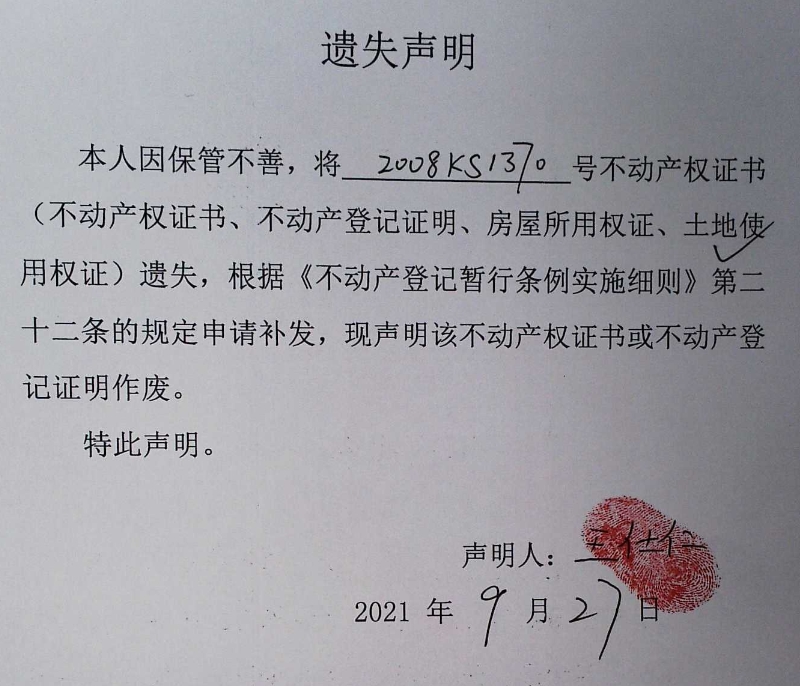 遗失声明
本人因保管不善，将 2008KS1370 号不动产权证书
（不动产权证书、不动产登记证明、房屋所用权证、土地使
用权证）遗失，根据《不动产登记暂行条例实施细则》第二
十二条的规定申请补发，现声明该不动产权证书或不动产登
记证明作废。
特此声明。
声明人：王仕仁
2021 年 9 月 27 日